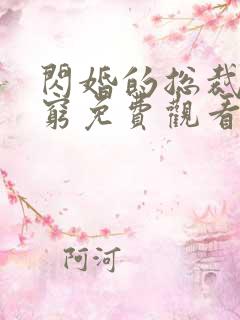 閃婚的总裁
窮免費觀看
阿河